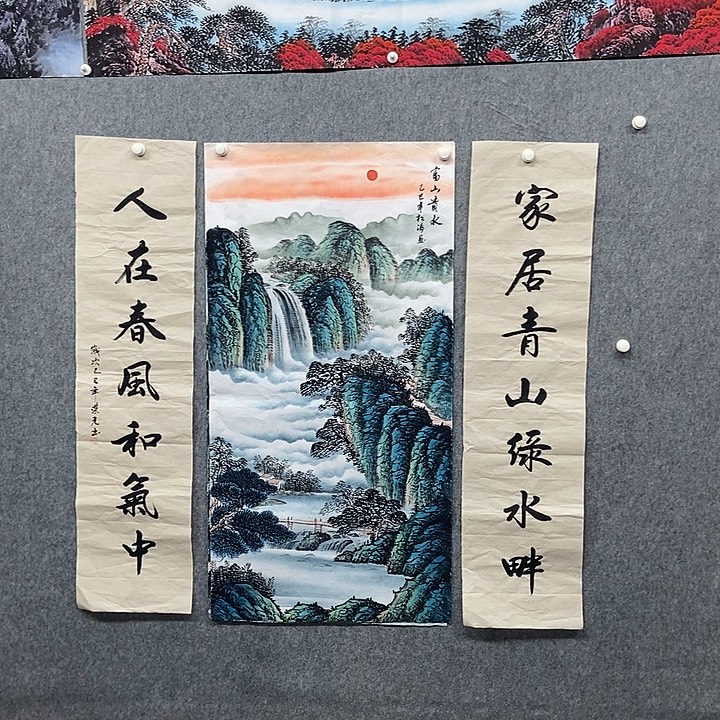 家居青山绿水畔
富山贵水
乙巳年松涛画
人在春風和氣中
歲次乙巳年